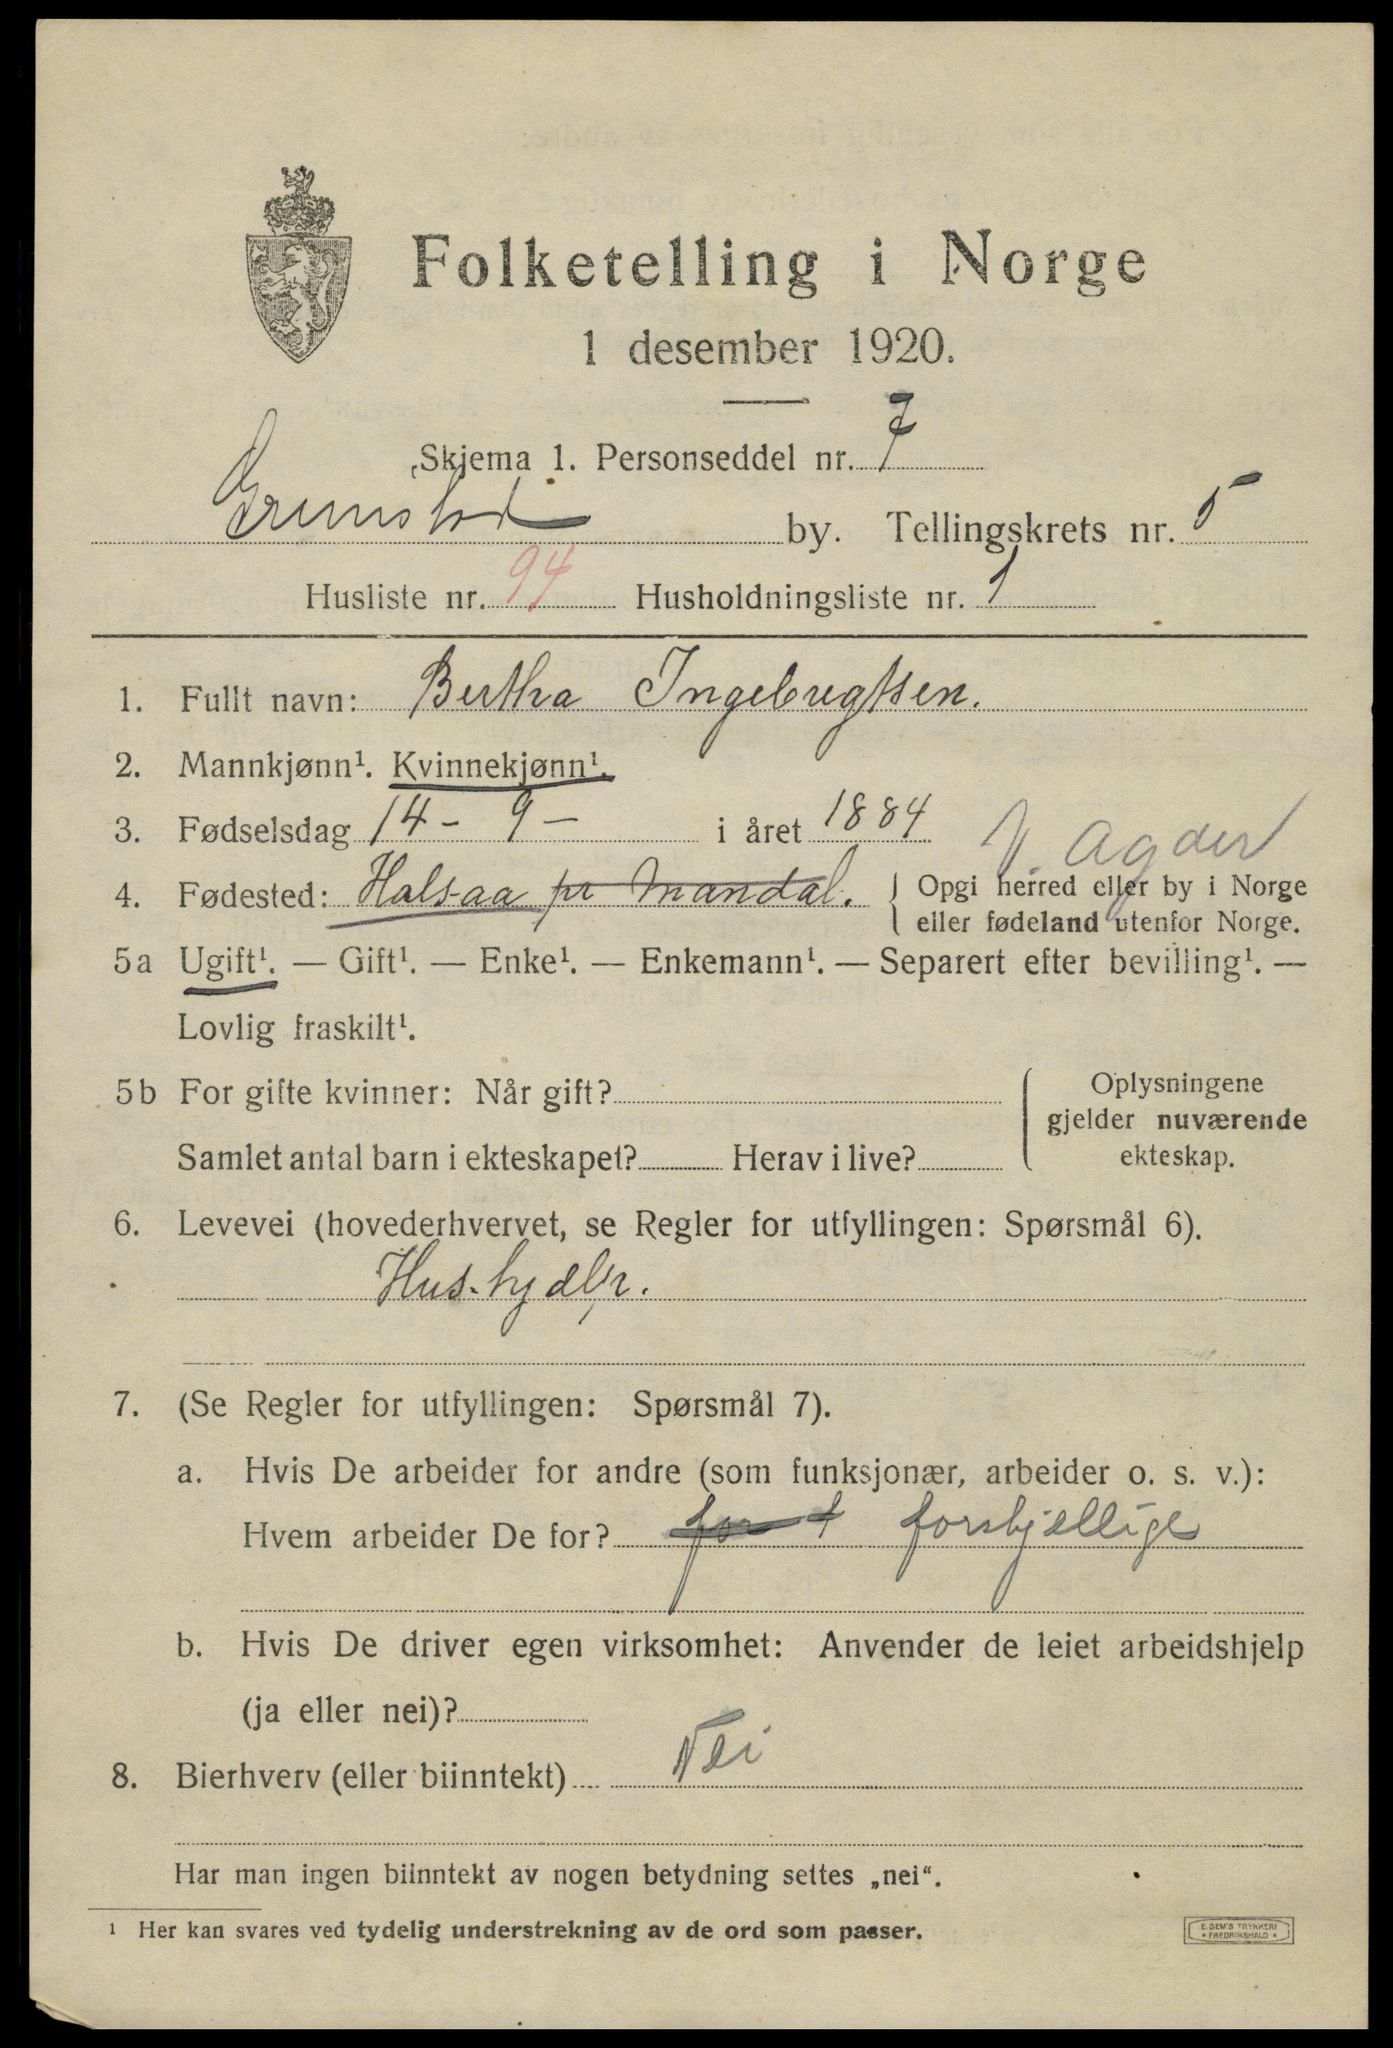 Folketelling i Norge
1 desember 1920.
Skjema 1. Personseddel nr. 7
Grimstad by. Tellingskrets nr. 5
Husliste nr. 94 Husholdningsliste nr. 1
1. Fullt navn: Bertha Ingebregtsen.
2. Mannkjønn¹. Kvinnekjønn¹.
3. Fødselsdag 14 - 9 - i året 1884
V. Agder
4. Fødested: Halsaa pr Mandal. { Opgi herred eller by i Norge
eller fødeland utenfor Norge.
5a Ugift¹. — Gift¹. — Enke¹. — Enkemann¹. — Separert efter bevilling¹. —
Lovlig fraskilt¹.
5b For gifte kvinner: Når gift?
Samlet antal barn i ekteskapet? Herav i live?
Oplysningene
gjelder nuværende
ekteskap.
6. Levevei (hovederhvervet, se Regler for utfyllingen: Spørsmål 6).
Hushjælp.
7. (Se Regler for utfyllingen: Spørsmål 7).
a. Hvis De arbeider for andre (som funksjonær, arbeider o. s. v.):
Hvem arbeider De for? for f forskjellige
b. Hvis De driver egen virksomhet: Anvender de leiet arbeidshjelp
(ja eller nei)?
8. Bierhverv (eller biinntekt) Nei
Har man ingen biinntekt av nogen betydning settes „nei“.
¹ Her kan svares ved tydelig understrekning av de ord som passer.
E. SEM'S TRYKKERI
* FREDRIKSHALD *